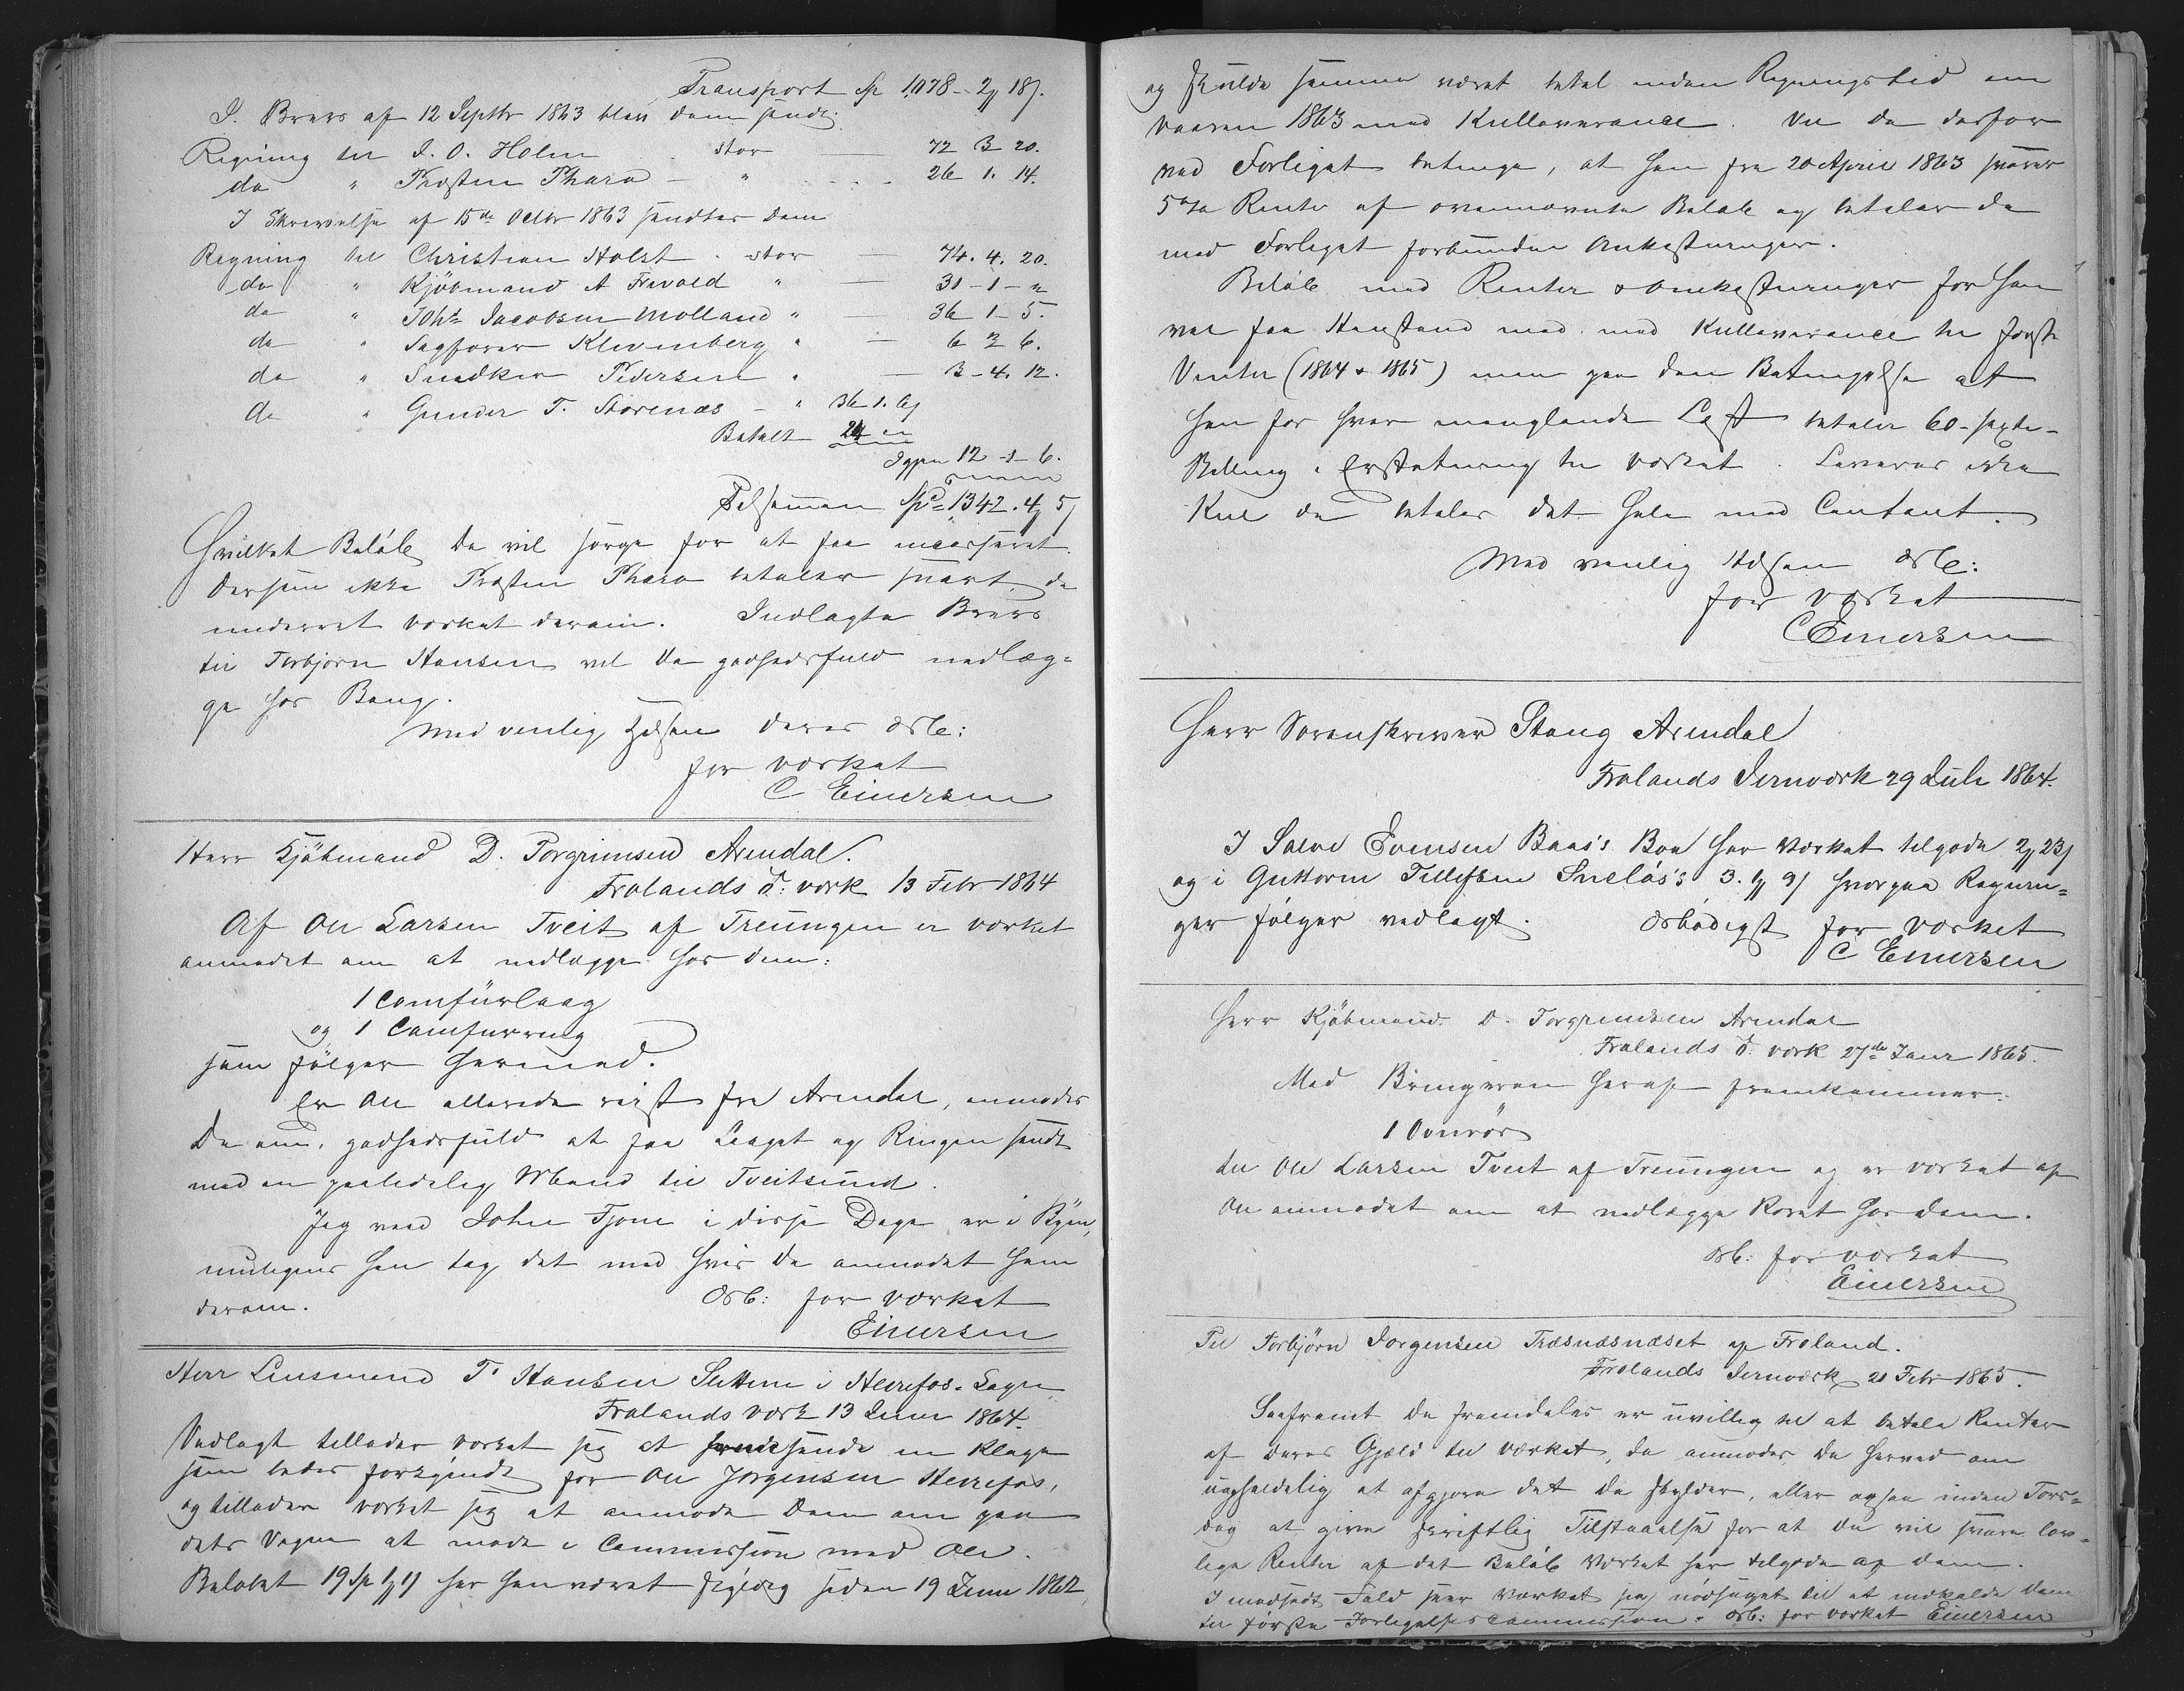 Transport Sp 1078 - 2 18
I Brev af 12 Septbr 1863 blev Dem sendt
Regning til J. O. Holm stor 72 3 20.
do " Præsten Tharo - " 26 1. 14.
I Skrivelse af 15de Octbr 1863 sendtes Dem
Regning til Christian Holst stor 74. 4. 20.
do " Kjöbmand A Frivold " 31 - 1 - "
do " Johs Jacobsen Molland " 36 1 - 5.
do " Sagfører Klevenberg " 6 3 6.
do " Snedker Pedersen " 3 - 4. 12.
do " Gunder T. Storenæs - " 36 1. 6
Betalt 24 "
Igjen 12 - 1 - 6.
Tilsammen Spd 1342. 4 5
Hvilket Beløb De vil sørge for at faa incasseret.
Dersom ikke Præsten Tharo betaler snart, da
underret Værket derom. Indlagte Brev
til Torbjørn Hansen vil De godhedsfuld nedlæg-
ge hos Bang.
Med venlig Hilsen Deres ærb:
for Værket
C Einersen
Herr Kjøbmand D. Torgrimsen Arendal.
Frolands J: værk 13 Febr 1864
Af Ole Larsen Tveit af Treungen er Værket
anmodet om at nedlægge hos Dem:
1 Comfürlaag
og 1 Comfurring
som følger hermed.
Er Ole allerede reist fra Arendal, anmodes
De om, godhedsfuld at faa Laaget og Ringen sendt
med en paalidelig Mand til Tveitsund.
Jeg veed John Fjone i disse Dage er i Byen,
muligens han tog det med hvis De anmodet ham
derom. Ærb: for Værket
Einersen
Herr Lensmand T. Hansen Slettene i Herefos Sogn
Frolands værk 13 Juni 1864.
Vedlagt tillader Værket sig at sende en Klage
som bedes forkyndt for Ole Jørgensen Herefos,
og tillader Værket sig at anmode Dem om paa
dets Vegne at møde i Commission med Ole.
Beløbet 19 Sp 1 11 har han været skyldig siden 19 Juni 1862
og skulde samme været betal inden Regningstid om
Vaaren 1863 med Kulleverance. Vil De derfor
ved Forliget betinge, at han fra 20 April 1863 svarer
5 % Renter af ovennævnte Beløb og betaler de
med Forliget forbundne Omkostninger.
Beløb med Renter & Omkostninger for han
vel faa Henstand med med Kulleverance til først
Vinter (1864 & 1865) men paa den Betingelse at
han for hver manglende Læst betaler 60 - sexti -
Skilling i Erstatning til Værket. Leveres ikke
Kul da betales det hele med Contant.
Med venlig Hilsen Ærb:
for Værket
C Einersen
Herr Sorenskriver Stang Arendal
Frolands Jernværk 29 Juli 1864.
I Salve Evensen Baas's Boe har Værket tilgode 2 23
og i Guttorm Tellefsen Sneløs's 3. 1 9 hvorpaa Regnin-
ger følger vedlagt. Ærbødigst for Værket
C Einersen
Herr Kjøbmand D. Torgrimsen Arendal
Frolands J. værk 27de Janr 1865.
Med Bringeren heraf fremkommer:
1 Ovnrør
til Ole Larsen Tveit af Treungen og er Værket af
Ole anmodet om at nedlægge Røret hos Dem.
Ærb: for Værket
Einersen
Til Torbjörn Jorgensen Træsnæsnæset af Froland.
Frolands Jernværk 21 Febr 1865.
Saafremt De fremdeles er uvillig til at betale Renter
af Deres Gjæld til Værket, da anmodes De herved om
uopholdelig at afgjøre det De skylder, eller ogsaa inden Tors-
dag at give skriftlig Tilstaaelse for at De vil svare lov-
lige Renter af det Beløb Værket har tilgode af Dem.
I modsat Fald seer Værket sig nødsaget til at indkalde Dem
til første Forligelsescommission. Ærb: for Værket Einersen